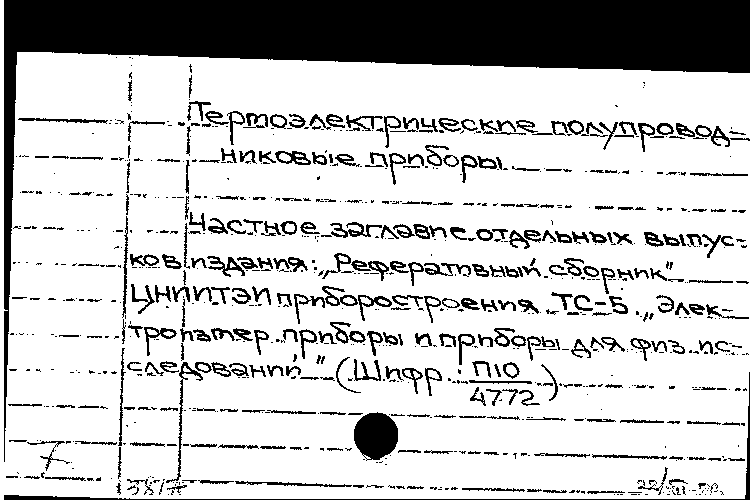 Термоэлектрические полупровод-
никовые приборы.
Частное заглавие отдельных выпус-
ков издания: „Реферативный сборник"
ЦНИИТЭИ приборостроения. ТС-5. „Элек-
троизмер. приборы и приборы для физ. ис-
следований" (Шифр: П10
4772)